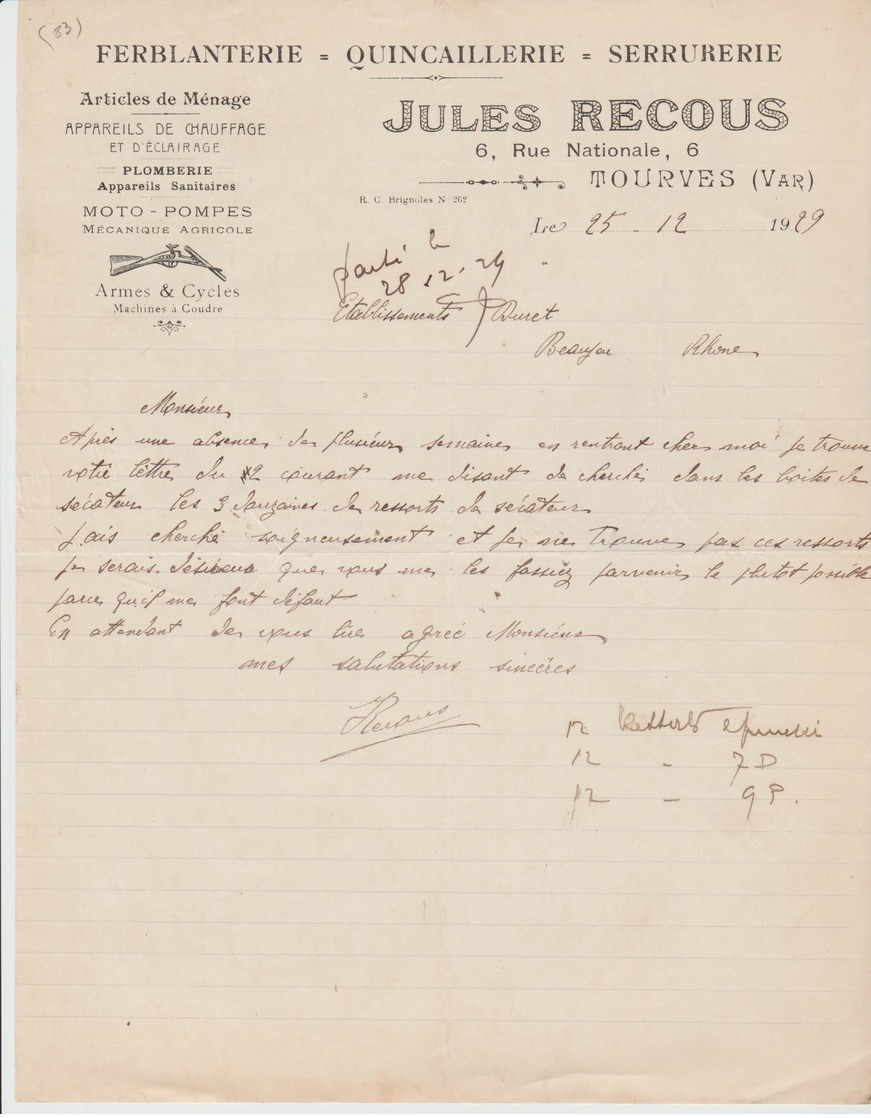 (83)
FERBLANTERIE = QUINCAILLERIE = SERRURERIE
Articles de Ménage
APPAREILS DE CHAUFFAGE
ET D'ÉCLAIRAGE
PLOMBERIE
Appareils Sanitaires
MOTO - POMPES
MÉCANIQUE AGRICOLE
Armes & Cycles
Machines à Coudre
JULES RECOUS
6, Rue Nationale, 6
TOURVES (VAR)
R. C. Brignoles N° 262
Le 25 - 12 1929
parti le
28 - 12 - 29
Etablissements Duret
Beaujeu Rhone
Monsieur
Après une absence de plusieur semaine en rentront cher moi je trouve
votre lettre du 2 courant me disant de cherché dans les boites de
sécateur les 3 douzaines de ressorts de sécateur
J'ais cherché soigneusement et je ne trouve pas ces ressorts
je serais désireux que vous me les fassiez parvenir le plutot possible
parce qu'il me font défaut
En attendant de vous lire agrée Monsieur
mes salutations sincères
Recous
12 Ressorts
12 - 7 D
12 - 9 P.